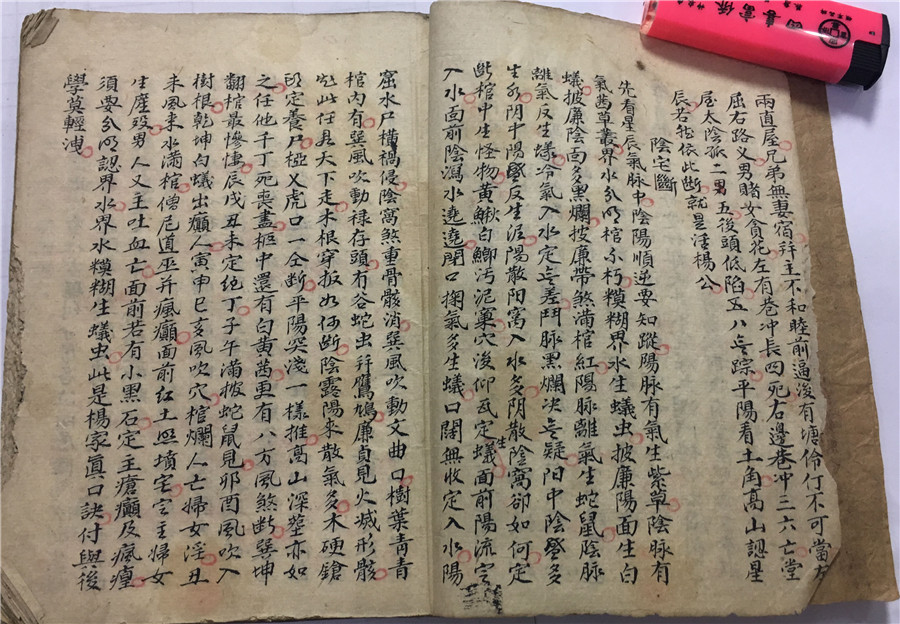 兩直屋兄弟無妻宿井主不和睦前逼後有塘伶仃不可當左
屈右路义男賭女貪花左有巷冲長四死右邊巷冲三六亡堂
屋太陰孤二男五後頭低陷五八無踪平陽看土角高山認星
辰若能依此断就是活楊公
陰宅斷
先看星辰氣脉中陰陽順逆要知蹤陽脉有氣生紫草陰脉有
氣茜草叢界水分明棺不朽糢糊界水生蟻虫披廉陽面生白
蟻披廉陰面多黑爛披廉帶煞滿棺紅陽脉離氣生蛇鼠陰脉
離氣反生蟻冷氣入水定無差鬥脉黑爛决無疑阳中陰盛多
生阴中陽盛反生泥陽散阳窩入水多阴散陰窩卻如何定
断棺中生怪物黄鰍白鳝污泥窠穴後仰瓦定生蟻面前陽流定
入水面前陰瀉水遶遶開口掬氣多生蟻口闊無收定入水陽
窟水尸橫禍侵陰窩煞重骨骸消巽風吹動文曲口樹葉青青
棺内有巽風吹動禄存頭有谷蛇虫并鷹鳩廉貞見火滅形骸
此任君天下走木根穿板如何断陰露陽来散氣多木硬鎗
頭定養尸極义虎口一仝断平陽突淺一樣推高山深葬亦如
之任他千丁死喪盡柩中還有白黄茜更有八方風煞断巽坤
翻棺最慘悽辰戌丑未定绝丁子午滿棺蛇鼠見卯酉風吹入
樹根乾坤白蟻出癲人寅申巳亥風吹穴棺爛人亡婦女淫丑
未風来水滿棺僧尼道巫并瘋癲面前红土照墳宅定主婦女
生産殁男人又主吐血亡面前若有小黑石定主瘡癲及瘋瘟
須要分明認界水界水糢糊生蟻虫此是楊家真口訣付與後
學莫輕洩